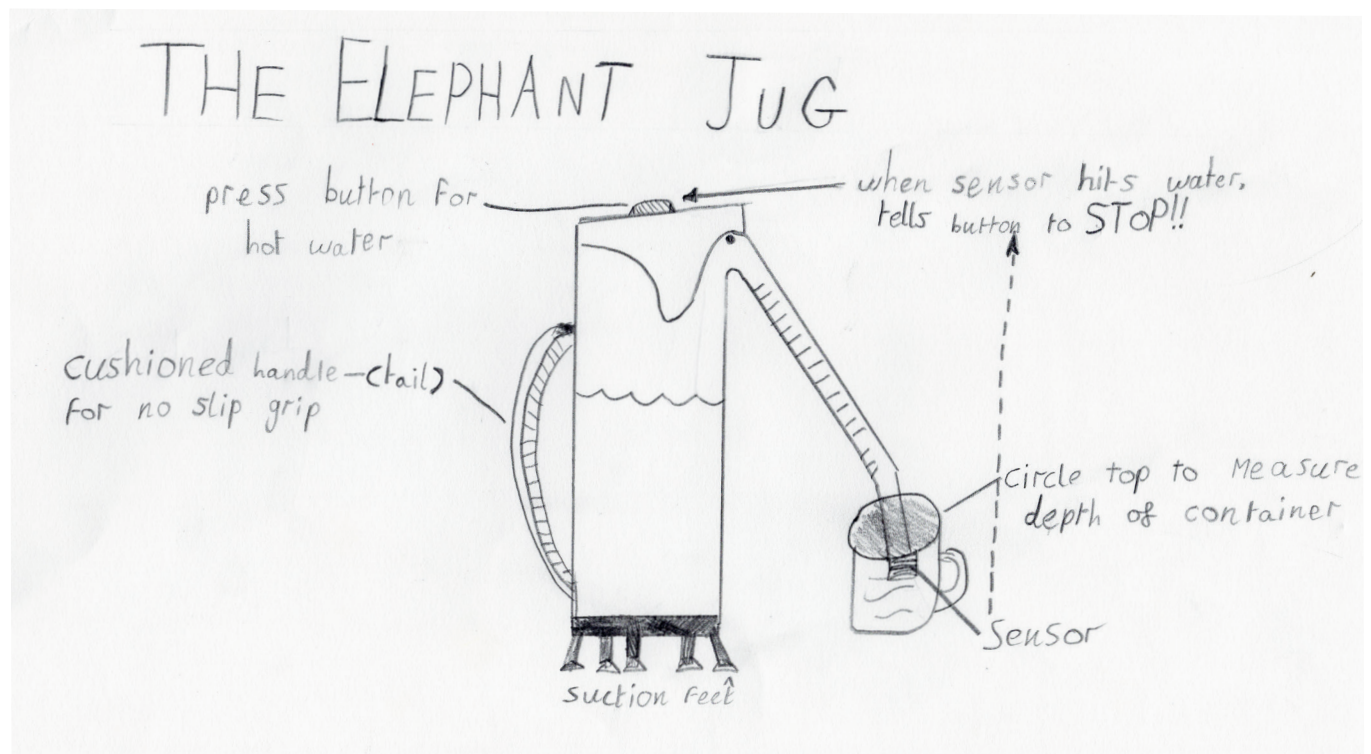 THE ELEPHANT JUG
press button for
hot water
when sensor hits water,
tells button to STOP!!
cushioned handle-(tail)
for no slip grip
circle top to measure
depth of container
Sensor
suction feet